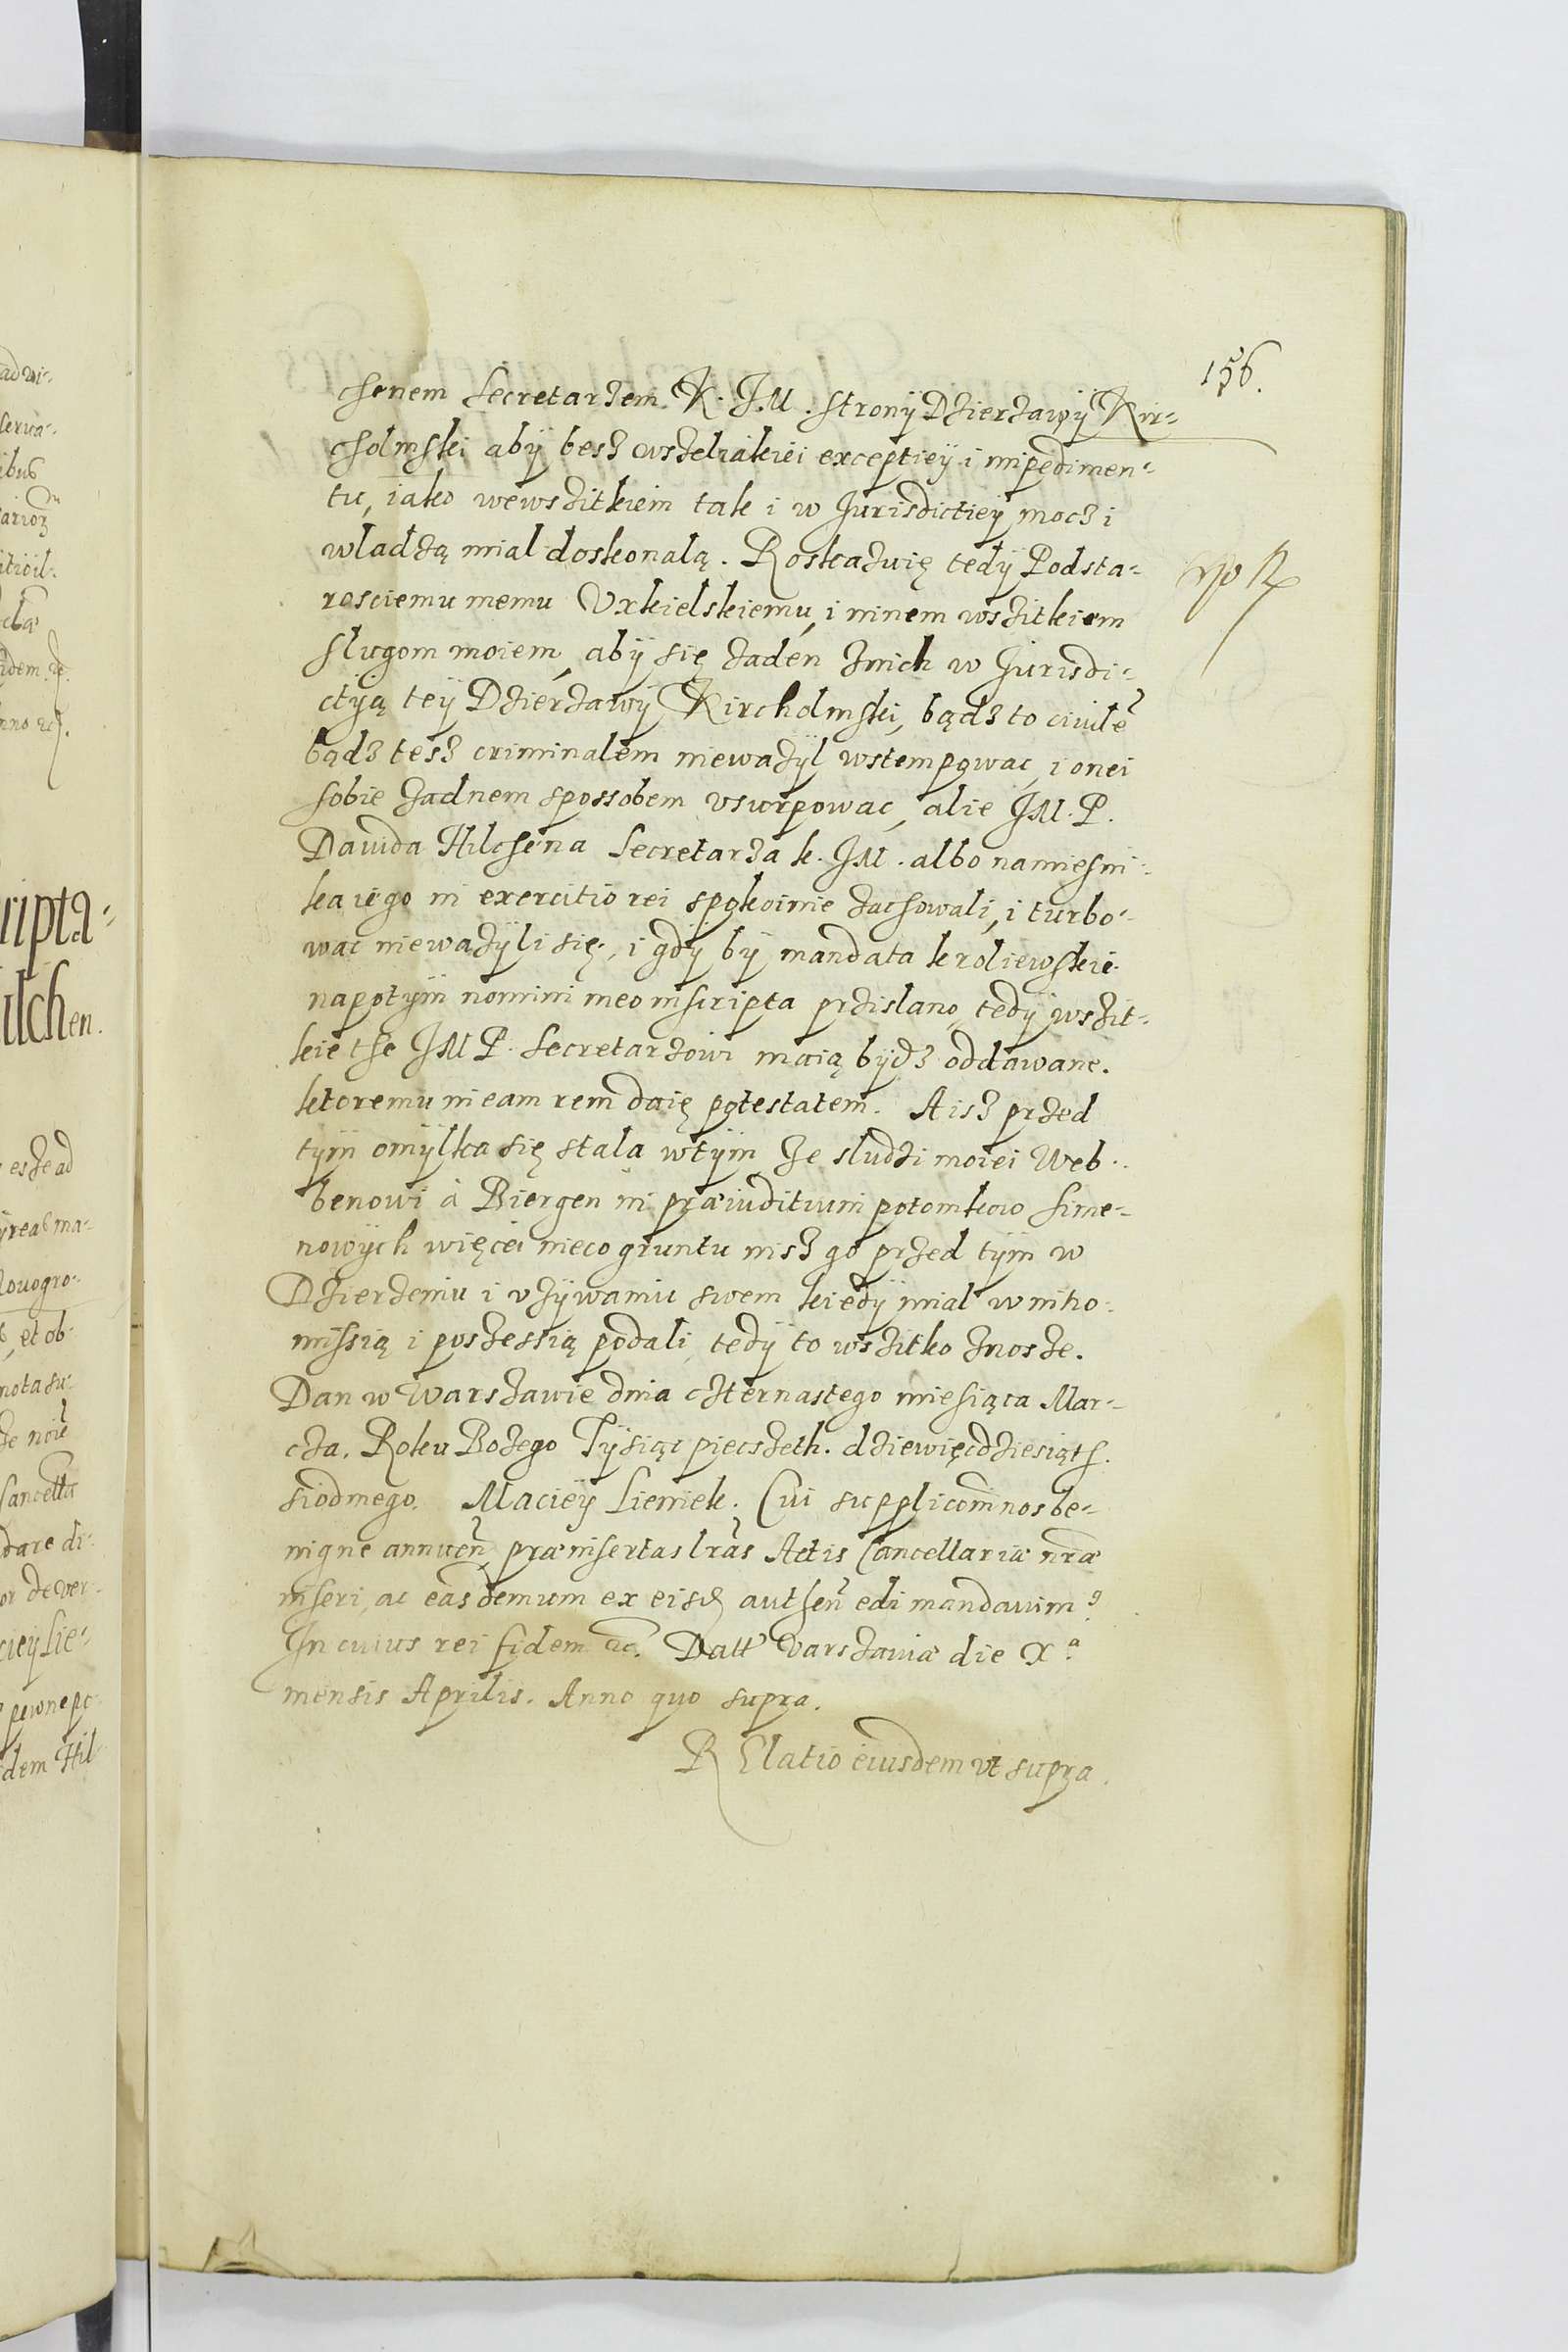 156.
chenem Secretarzem K. J.M. strony Dzierzawy Kir-
cholmski aby besz wszeliakiei exceptiey i impedimen-
tu, iako wewszitkiem tak i w Jurisdictiey mocz i
wladzą mial doskonalą. Roskazuię tedy Podsta-
rosciemu memu Vxkielskiemu, i ninem wszitkiem
slugom moiem, aby się zaden znich w Jurisdi-
ctyą tey Dzierzawy Kircholmski, bądz to ciuile
bądz tesz criminalem niewazyl wstempowac, i onei
sobie zadnem spossobem vsurpowac, alie JM. P.
Dauida Hilchena Secretarza k. JM. albo namiesni-
ka iego in exercitio rei spokoinie zachowali, i turbo-
wac niewazyli się, i gdy by mandata kroliewskie
napotym nomini meo inscripta przislano, tedy wszit-
kie the JM P. Secretarzowi maią bydz oddawane.
ktoremu in eam rem daię potestatem. A isz przed
tym omylka się stala wtym ze sludzi moiei Web-
benowi à Biergen in præiuditium potomkow Sime-
nowych więcei nieco gruntu nisz go przed tym w
Dzierzeniu i vzywaniu swem kiedy mial w intro-
missią i poszessią podali, tedy to wszitko znosze.
Dan w Warszawie dnia czternastego miesiąca Mar-
cza. Roku Bozego Tysiąc pieczseth. dziewięcdziesiąth.
siodmego. Maciey Lieniek. Cui supplicom nos be-
nigne annuen præinsertas lras Actis Cancellariæ nræ
inseri, ac easdemum ex eisd authen edi mandauim9
In cuius rei fidem etc. Datt Varszauiæ die Xa
mensis Aprilis. Anno quo supra.
RElatio eiusdem vt supra.
ad
serua-
ibus
idem
ripta-
ilchen.
esze ad
ouogro-
et ob-
nota su-
Cancella
dare di-
or de ver-
ciey Lie-
pewne po-
dem Hil-